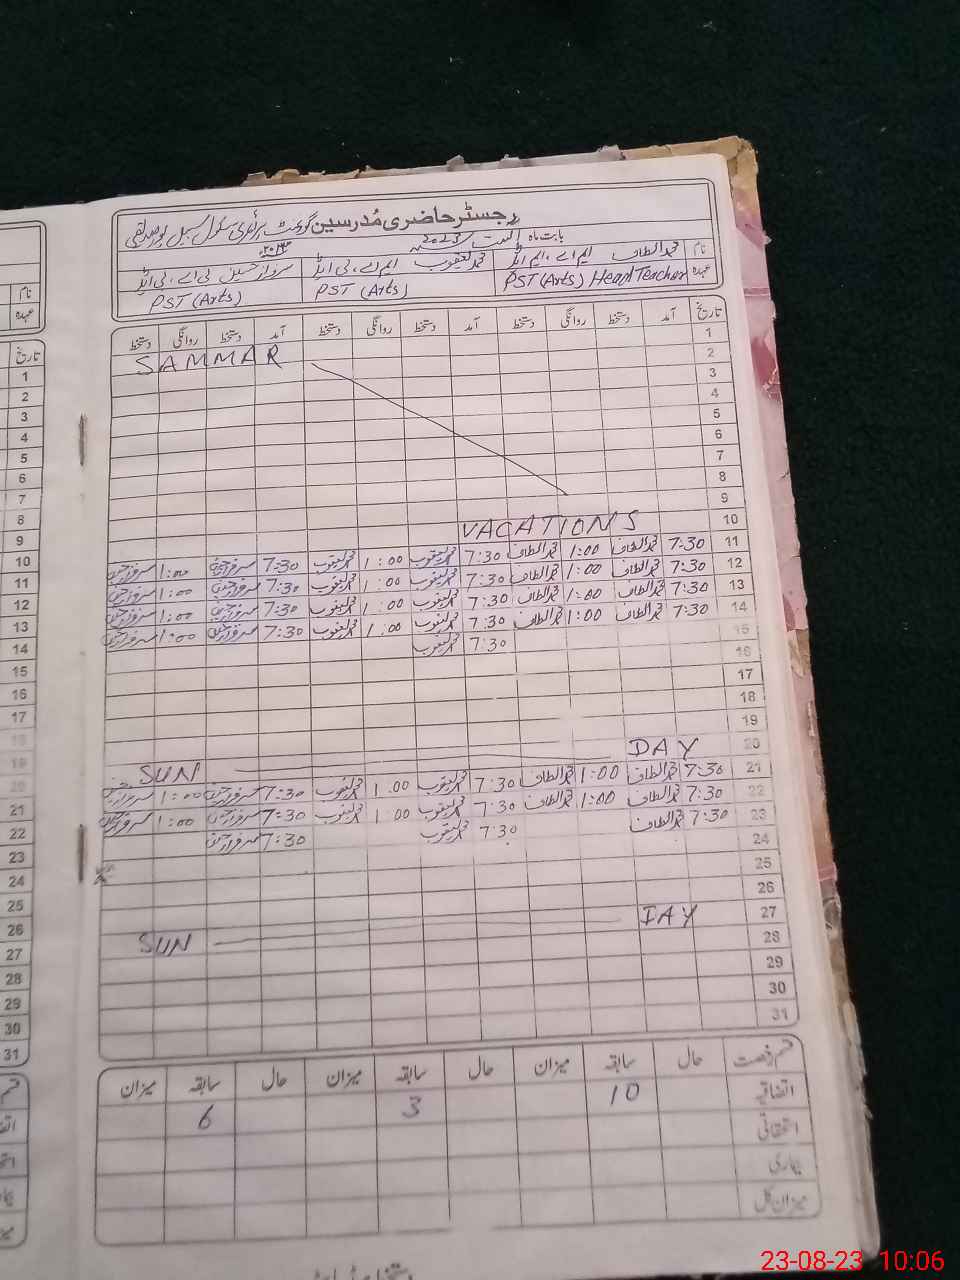 رجسٹر حاضری مُدرسین گورنمنٹ پرائمری سکول
بابت ماہ اگست 2023
نام محمد الطاف ایم اے، ایم ایڈ محمد یعقوب ایم اے، بی ایڈ سرفراز حسین بی اے، بی ایڈ
عہدہ PST (Arts) Head Teacher PST (Arts) PST (Arts)
تاریخ آمد دستخط روانگی دستخط آمد دستخط روانگی دستخط آمد دستخط روانگی دستخط
1
2 SAMMAR
3
4
5
6
7
8
9
10 VACATIONS
11 7:30 محمد الطاف 1:00 محمد الطاف 7:30 محمد یعقوب 1:00 محمد یعقوب 7:30 سرفراز حسین 1:00 سرفراز حسین
12 7:30 محمد الطاف 1:00 محمد الطاف 7:30 محمد یعقوب 1:00 محمد یعقوب 7:30 سرفراز حسین 1:00 سرفراز حسین
13 7:30 محمد الطاف 1:00 محمد الطاف 7:30 محمد یعقوب 1:00 محمد یعقوب 7:30 سرفراز حسین 1:00 سرفراز حسین
14 7:30 محمد الطاف 1:00 محمد الطاف 7:30 محمد یعقوب 1:00 محمد یعقوب 7:30 سرفراز حسین 1:00 سرفراز حسین
15 7:30 محمد یعقوب
16
17
18
19
20 SUN DAY
21 7:30 محمد الطاف 1:00 محمد الطاف 7:30 محمد یعقوب 1:00 محمد یعقوب 7:30 سرفراز حسین 1:00 سرفراز حسین
22 7:30 محمد الطاف 1:00 محمد الطاف 7:30 محمد یعقوب 1:00 محمد یعقوب 7:30 سرفراز حسین 1:00 سرفراز حسین
23 7:30 محمد الطاف 7:30 محمد یعقوب 7:30 سرفراز حسین
24
25
26
27 SUN DAY
28
29
30
31
قسم رخصت حال سابقہ میزان حال سابقہ میزان حال سابقہ میزان
اتفاقیہ 10 3 6
استحقاقی
بیماری
میزان کل
نام
عہدہ
تاریخ
1
2
3
4
5
6
7
8
9
10
11
12
13
14
15
16
17
18
19
20
21
22
23
24
25
26
27
28
29
30
31
23-08-23 10:06